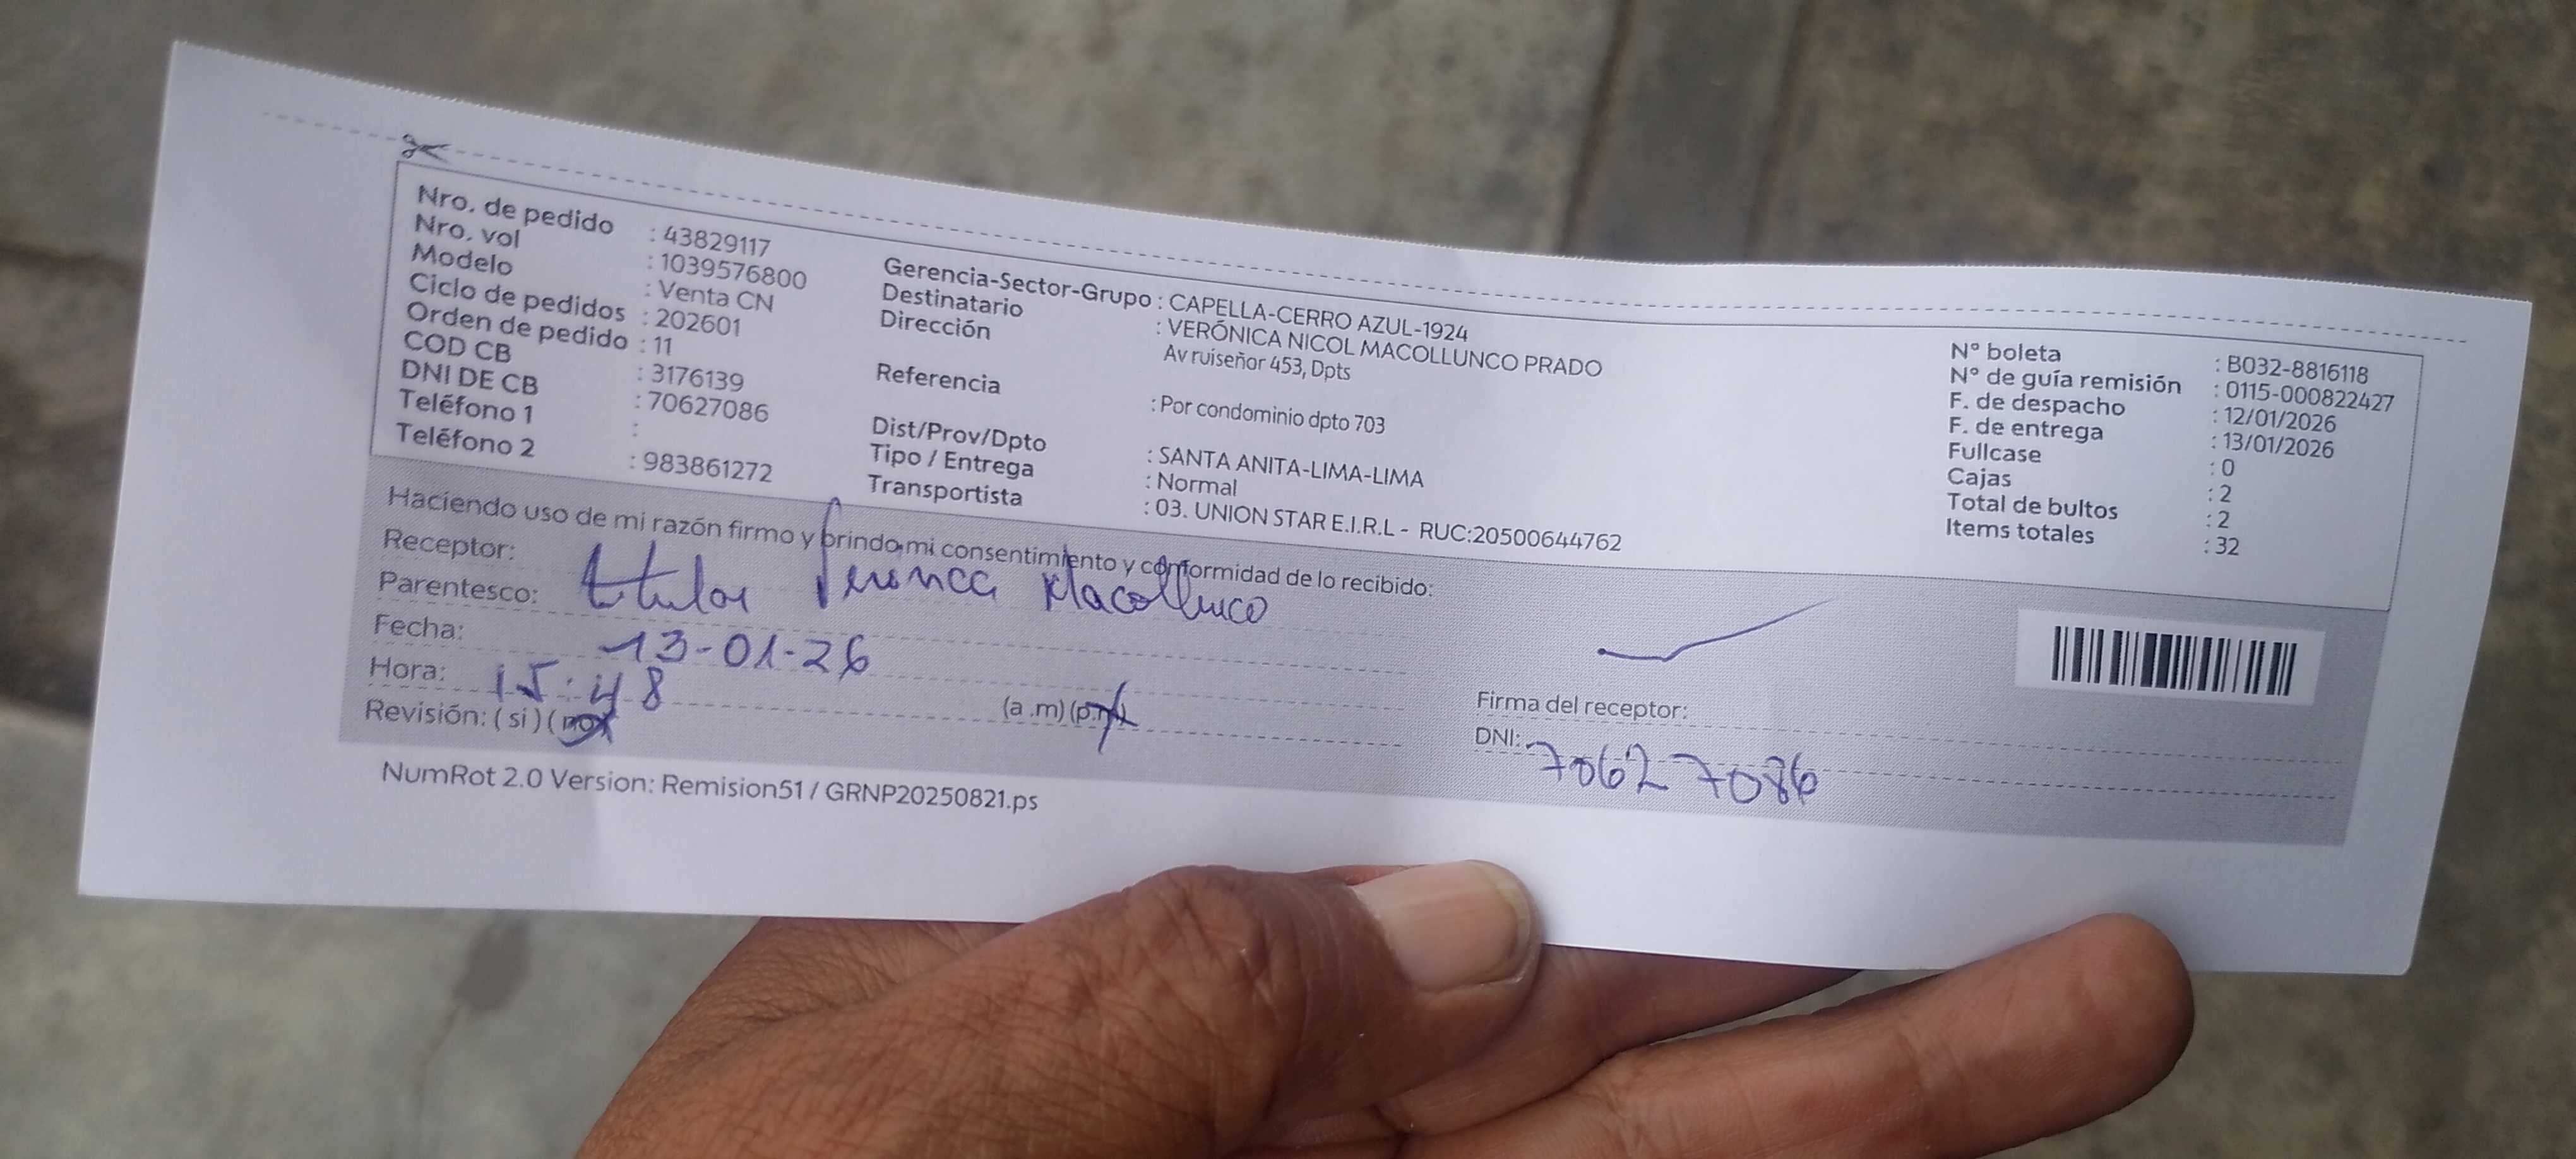 Nro. de pedido : 43829117
Nro. vol : 1039576800
Modelo : Venta CN
Ciclo de pedidos : 202601
Orden de pedido : 11
COD CB : 3176139
DNI DE CB : 70627086
Teléfono 1 :
Teléfono 2 : 983861272
Gerencia-Sector-Grupo : CAPELLA-CERRO AZUL-1924
Destinatario : VERÓNICA NICOL MACOLLUNCO PRADO
Dirección Av ruiseñor 453, Dpts
Referencia : Por condominio dpto 703
Dist/Prov/Dpto : SANTA ANITA-LIMA-LIMA
Tipo / Entrega : Normal
Transportista : 03. UNION STAR E.I.R.L - RUC:20500644762
N° boleta : B032-8816118
N° de guía remisión : 0115-000822427
F. de despacho : 12/01/2026
F. de entrega : 13/01/2026
Fullcase : 0
Cajas : 2
Total de bultos : 2
Items totales : 32
Haciendo uso de mi razón firmo y brindo mi consentimiento y conformidad de lo recibido:
Receptor:
Parentesco: titular Veronica Macollunco
Fecha: 13-01-26
Hora: 15:48 (a.m) (p.m)
Revisión: (si) (no)
Firma del receptor:
DNI: 70627086
NumRot 2.0 Version: Remision51 / GRNP20250821.ps